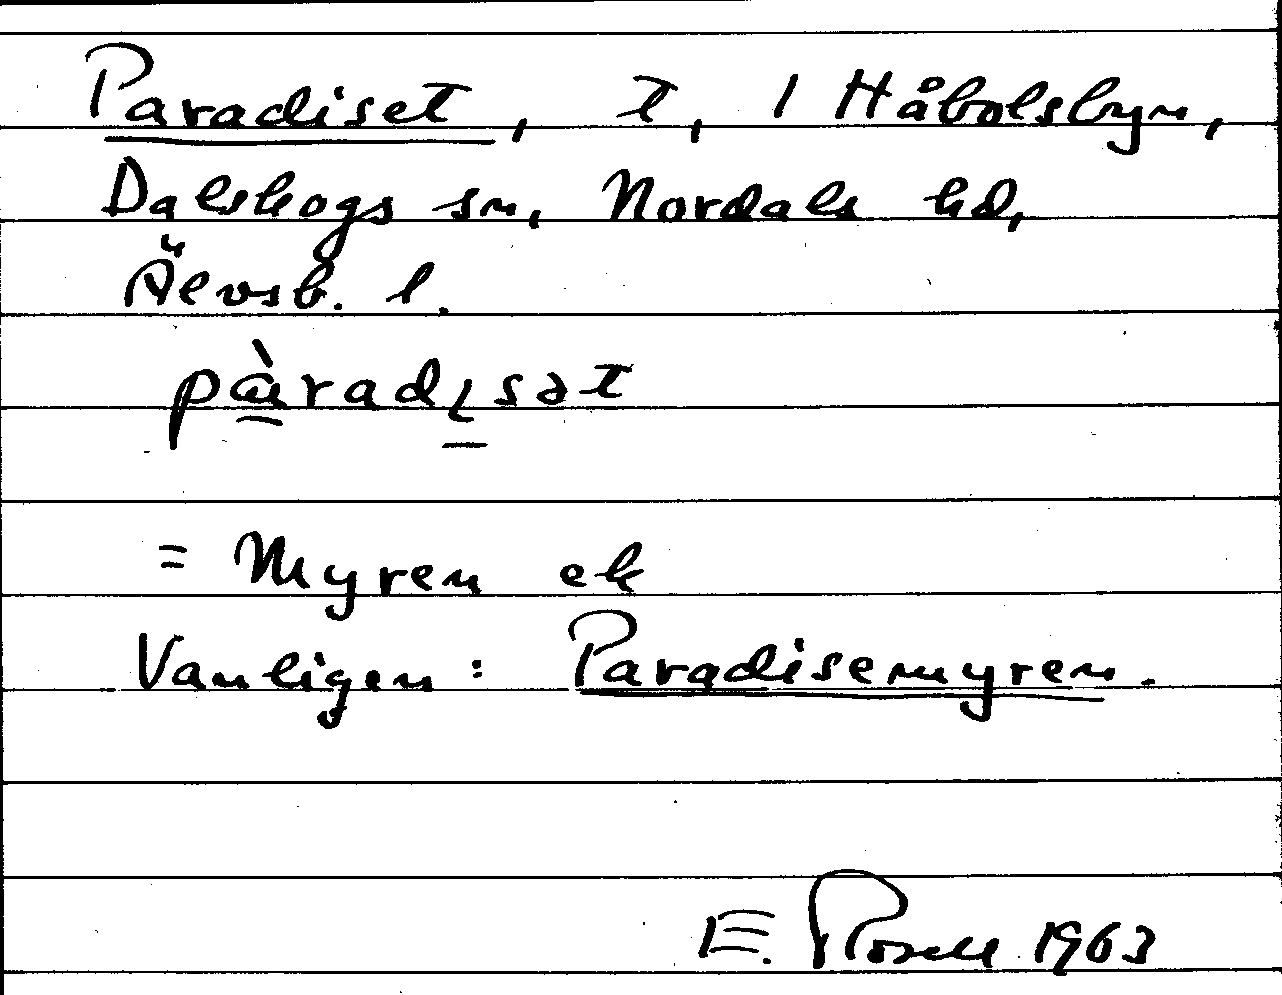 Paradiset, t, 1 Håbolsbyn,
Dalskogs sn, Nordals hd,
Älvsb. l.
pàradɩsət
= Myren ek
Vanligen: Paradisemyren.
E. Rosell 1963